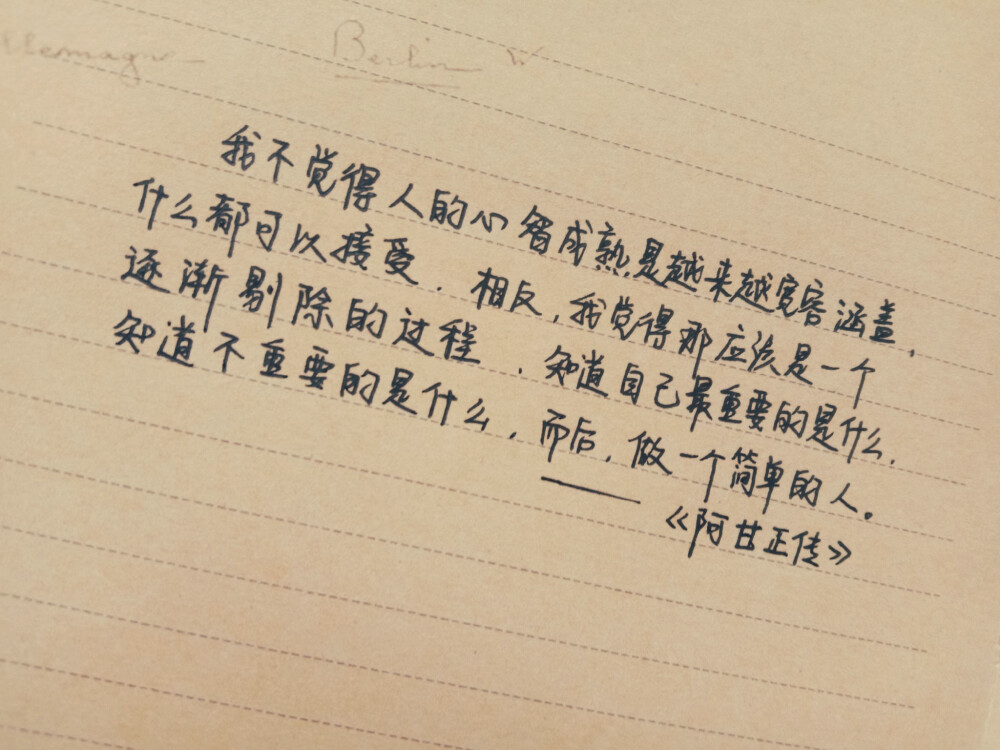 Berlin
我不觉得人的心智成熟是越来越宽容涵盖,
什么都可以接受. 相反,我觉得那应该是一个
逐渐剔除的过程. 知道自己最重要的是什么.
知道不重要的是什么. 而后. 做一个简单的人。
——《阿甘正传》